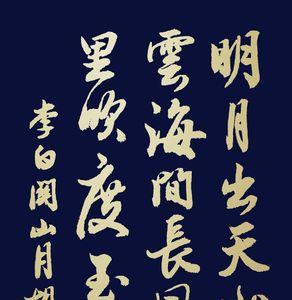 明月出天
雲海間長
里吹度玉
李白関山月